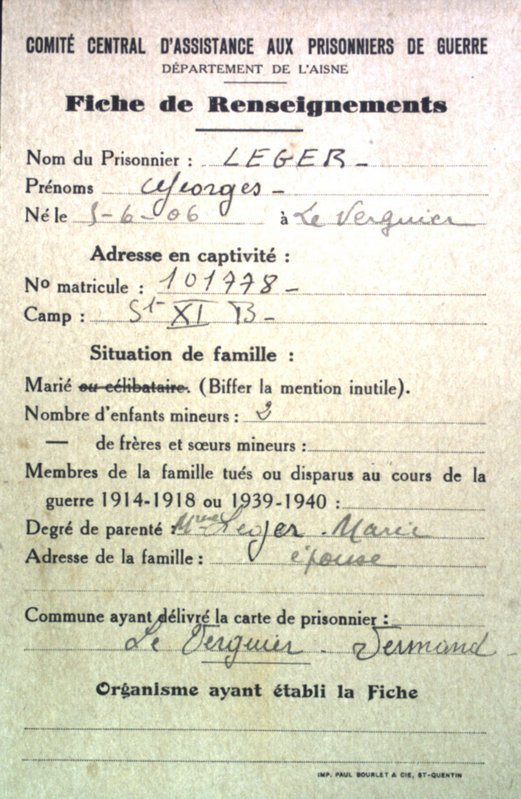 COMITÉ CENTRAL D'ASSISTANCE AUX PRISONNIERS DE GUERRE
DÉPARTEMENT DE L'AISNE
Fiche de Renseignements
Nom du Prisonnier : LEGER -
Prénoms Georges -
Né le 5-6-06 à Le Verguier
Adresse en captivité :
No matricule : 101778 -
Camp : St XI B -
Situation de famille :
Marié ou célibataire. (Biffer la mention inutile).
Nombre d'enfants mineurs : 2
— de frères et sœurs mineurs :
Membres de la famille tués ou disparus au cours de la
guerre 1914-1918 ou 1939-1940 :
Degré de parenté : Mme Leger Marie
Adresse de la famille : épouse
Commune ayant délivré la carte de prisonnier :
Le Verguier - Vermand -
Organisme ayant établi la Fiche
IMP. PAUL BOURLET & CIE, ST-QUENTIN